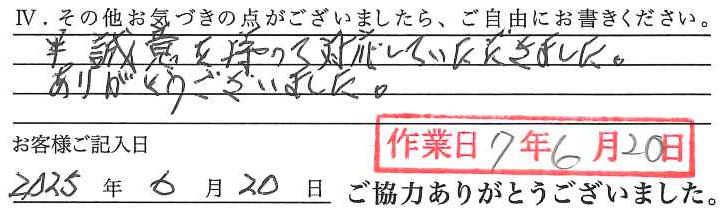 Ⅳ．その他お気づきの点がございましたら、ご自由にお書きください。
誠意を持って対応していただきました。
ありがとうございました。
お客様ご記入日
作業日 7年6月20日
2025年6月20日
ご協力ありがとうございました。